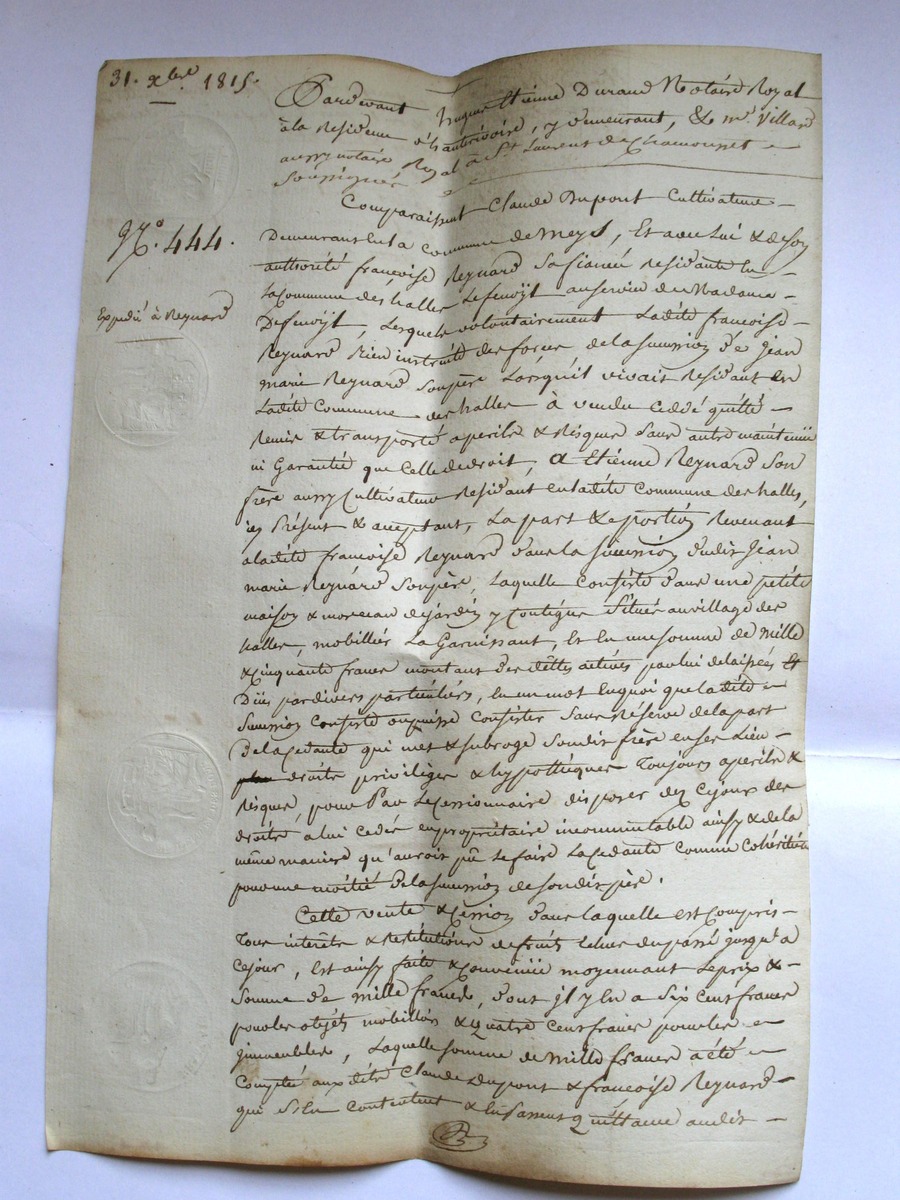 31. xbre. 1815.
Pardevant hugue Etienne Durand Notaire Royal
à la Residence d'hauterivoire, y demeurant, & mr. Villard
aussy notaire Royal à St. Laurent de Chamousset
Soussignés
Comparaissent Claude Dupont Cultivateur
N°. 444.
Demeurant en la Commune de Meys, Et avec lui & de son
authorité françoise Reynard Sa fiancée Residante en
La Commune des halles Lefenoÿl au service de Madame
Expedié à Reynard
Defenoÿl, Lesquels volontairement Ladite francoise
Reynard bien instruite des forces de la succession de Jean
marie Reynard Son père Lorsquil vivait Residant en
Ladite Commune des halles à vendu cedé quitté
Remis & transporté a perils & Risques Sans autre maintenüe
ni Garantie que Celle de droit, a Etienne Reynard Son
frère aussy Cultivateur Residant en ladite Commune des halles,
icy Présent & acceptant, La part & portion Revenant
a ladite francoise Reynard dans la succession dudit Jean
marie Reynard Son père, Laquelle Consiste dans une petite
maison & morceau de jardin y Contigue Situés au village des
halles, mobilliers La Garnissant, Et En une somme de Mille
& cinquante francs montant des dettes actives par lui delaissées Et
Dües par divers particuliers, En un mot En quoi que ladite
Succession Consiste ou puisse Consister Sans Réserve de la part
De la cedante qui met & subroge Son dit frère en ses Lieu
droits privilèges & hypothèques Toujours a perils &
Risques, pour Par Le Cessionnaire disposer dez Cejour des
droits a lui Cedés en propriétaire incommutable ainsy & de la
même maniere qu'auroit pû Le faire La Cedante Comme Cohéritière
pour une moitié de la succession de son dit père.
Cette vente & Cession dans laquelle est Compris
Tous interêts & Restitutions de fruits Echus du passé jusqu'a
Cejour, Est ainsy faite & Convenüe moyennant Le prix &
Somme de mille francs, dont jl y En a Six Cent francs
pour les objets mobilliers & quatre Cent francs pour les
jmmeubles, Laquelle Somme de Mille francs a été
Comptée aux dits Claude Dupont & francoise Reynard
qui S'en Contentent & En passent Quittance audit